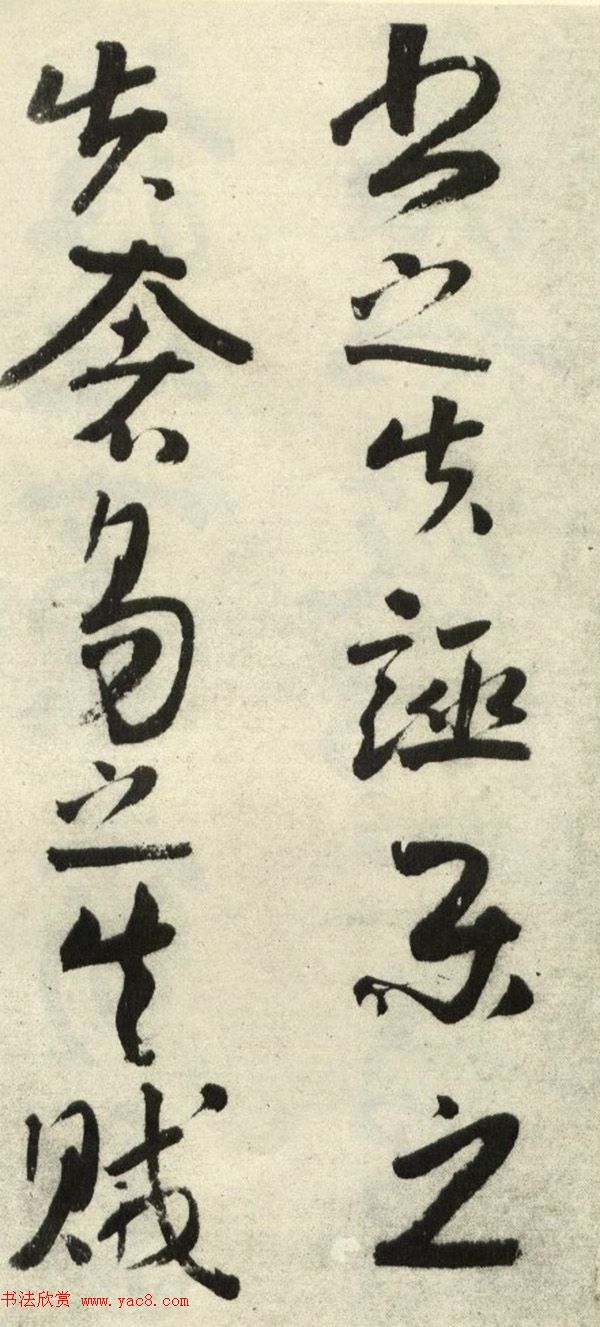 書之失誣樂之
失奢易之失賊
书法欣赏 www.yac8.com